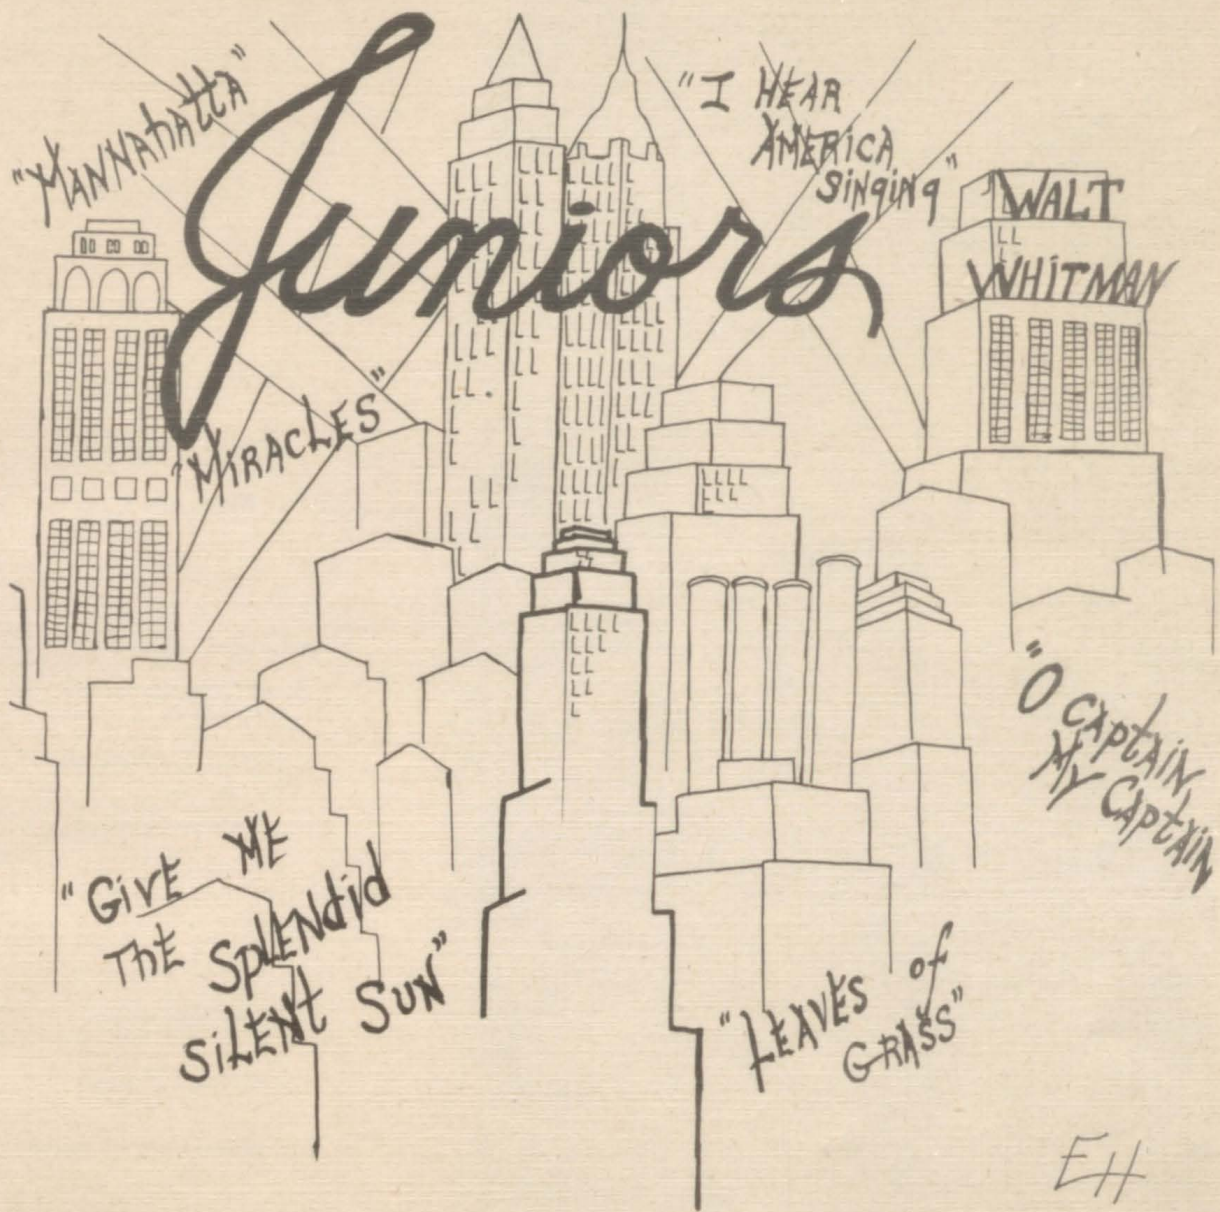 "MANNAhATTA"
Juniors
"I HEAR
AMERICA
SiNgiNg"
WALT
WHiTMAN
"MiRACLES"
"O CAPTAiN
MY CAPTAiN
"GiVE ME
ThE SPLENdid
SiLENt SUN"
"LEAVES of
GRASS"
EH